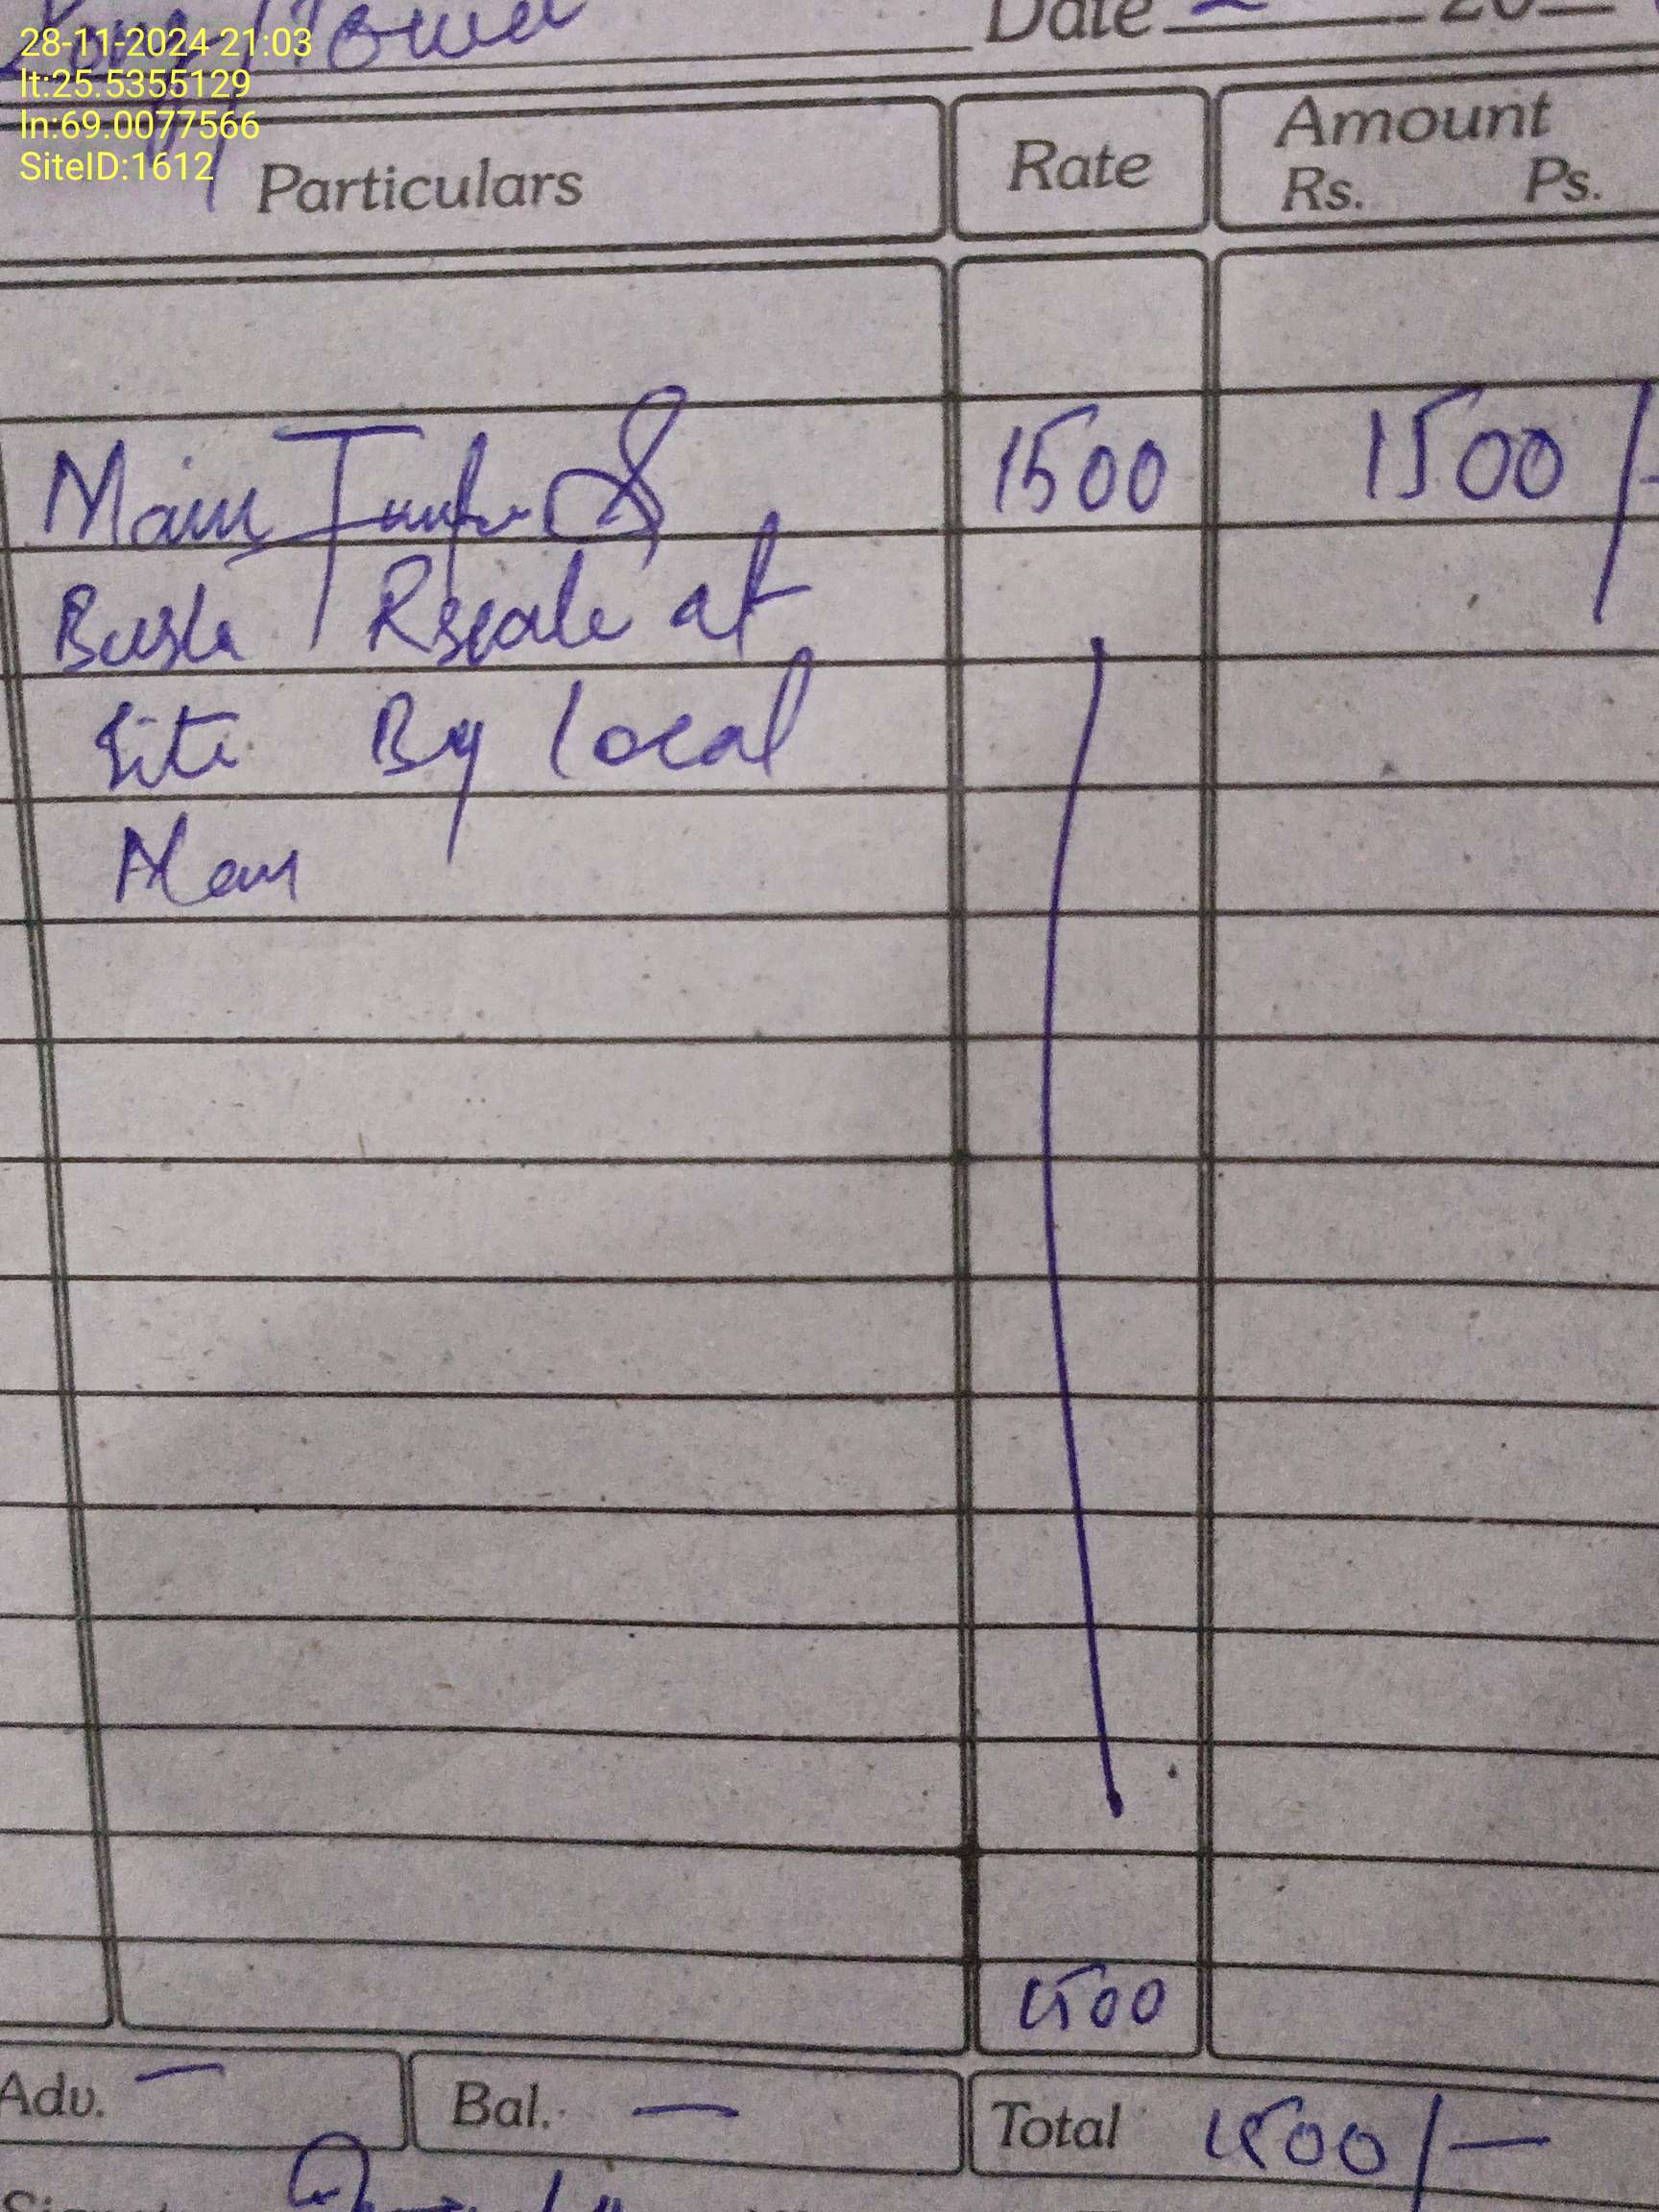 Date 20
28-11-2024 21:03
lt:25.5355129
ln:69.0077566
SiteID:1612
Particulars Rate Amount
Rs. Ps.
Main & 1500 1500/-
at
Site By local
Man
1500
Adv. — Bal. — Total 1500/—